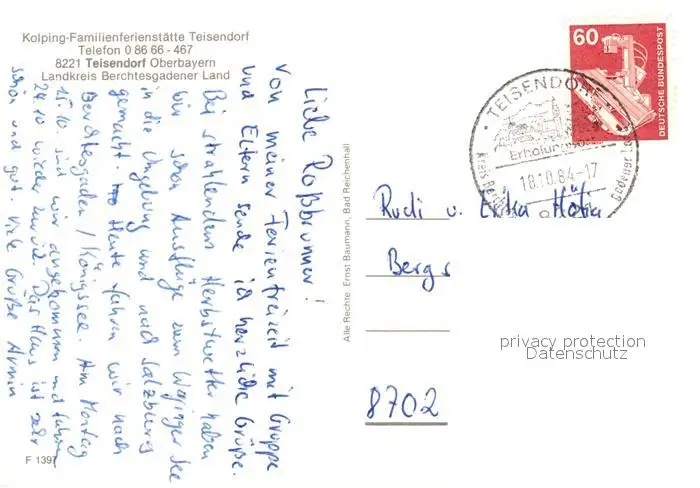 Kolping-Familienferienstätte Teisendorf
Telefon 0 86 66 - 467
8221 Teisendorf Oberbayern
Landkreis Berchtesgadener Land
Liebe Roßbrunner!
Von meiner Ferienfreizeit mit Gruppe
und Eltern sende ich herzliche Grüße.
Bei strahlendem Herbstwetter haben
wir schon Ausflüge zum Waginger See
in die Umgebung und nach Salzburg
gemacht. Heute fahren wir nach
Berchtesgaden / Königssee. Am Montag
15.10. sind wir angekommen und fahren
24.10. wieder zurück. Das Haus ist sehr
schön und gut. Viele Grüße Armin
F 1397
Alle Rechte: Ernst Baumann, Bad Reichenhall
60
DEUTSCHE BUNDESPOST
TEISENDORF
Erholungsort
18.10.84-17
Rudi u. Erika
8702
privacy protection
Datenschutz